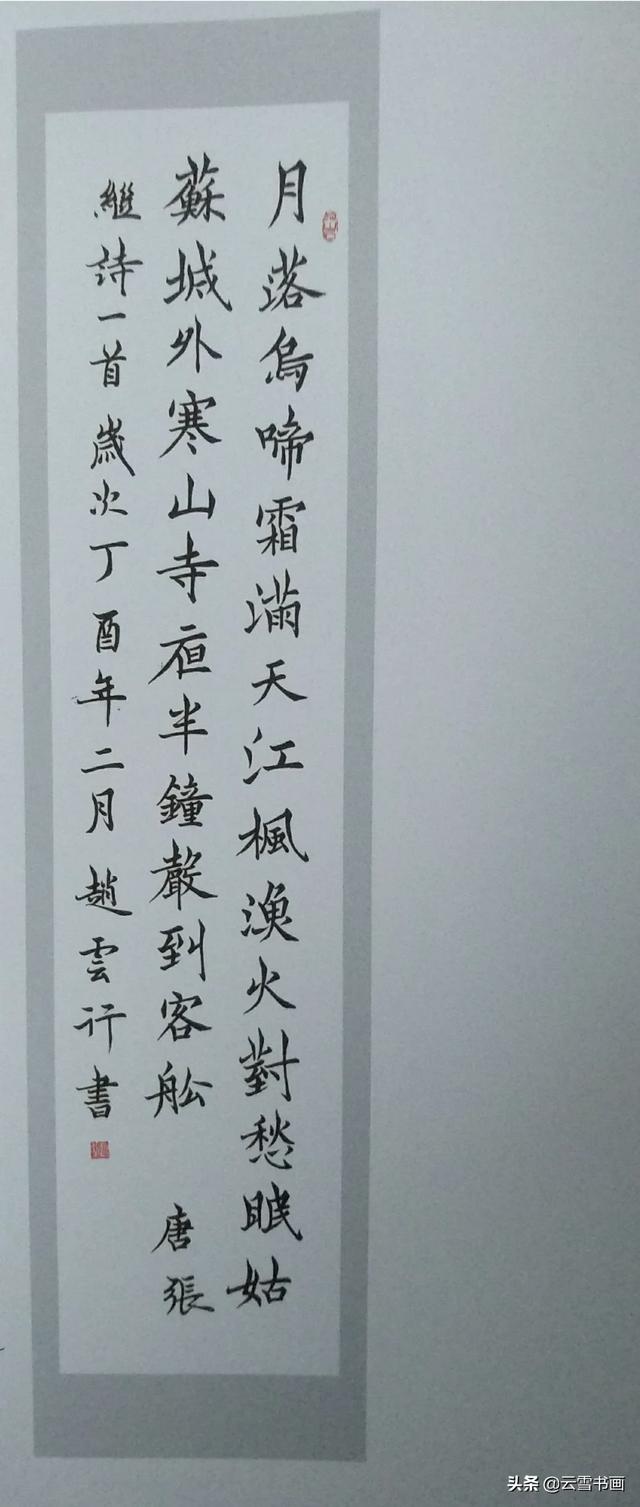 月落烏啼霜滿天江楓漁火對愁眠姑
蘇城外寒山寺夜半鐘聲到客船 唐張
繼詩一首歲次丁酉年二月趙雲行書
头条 @云雪书画